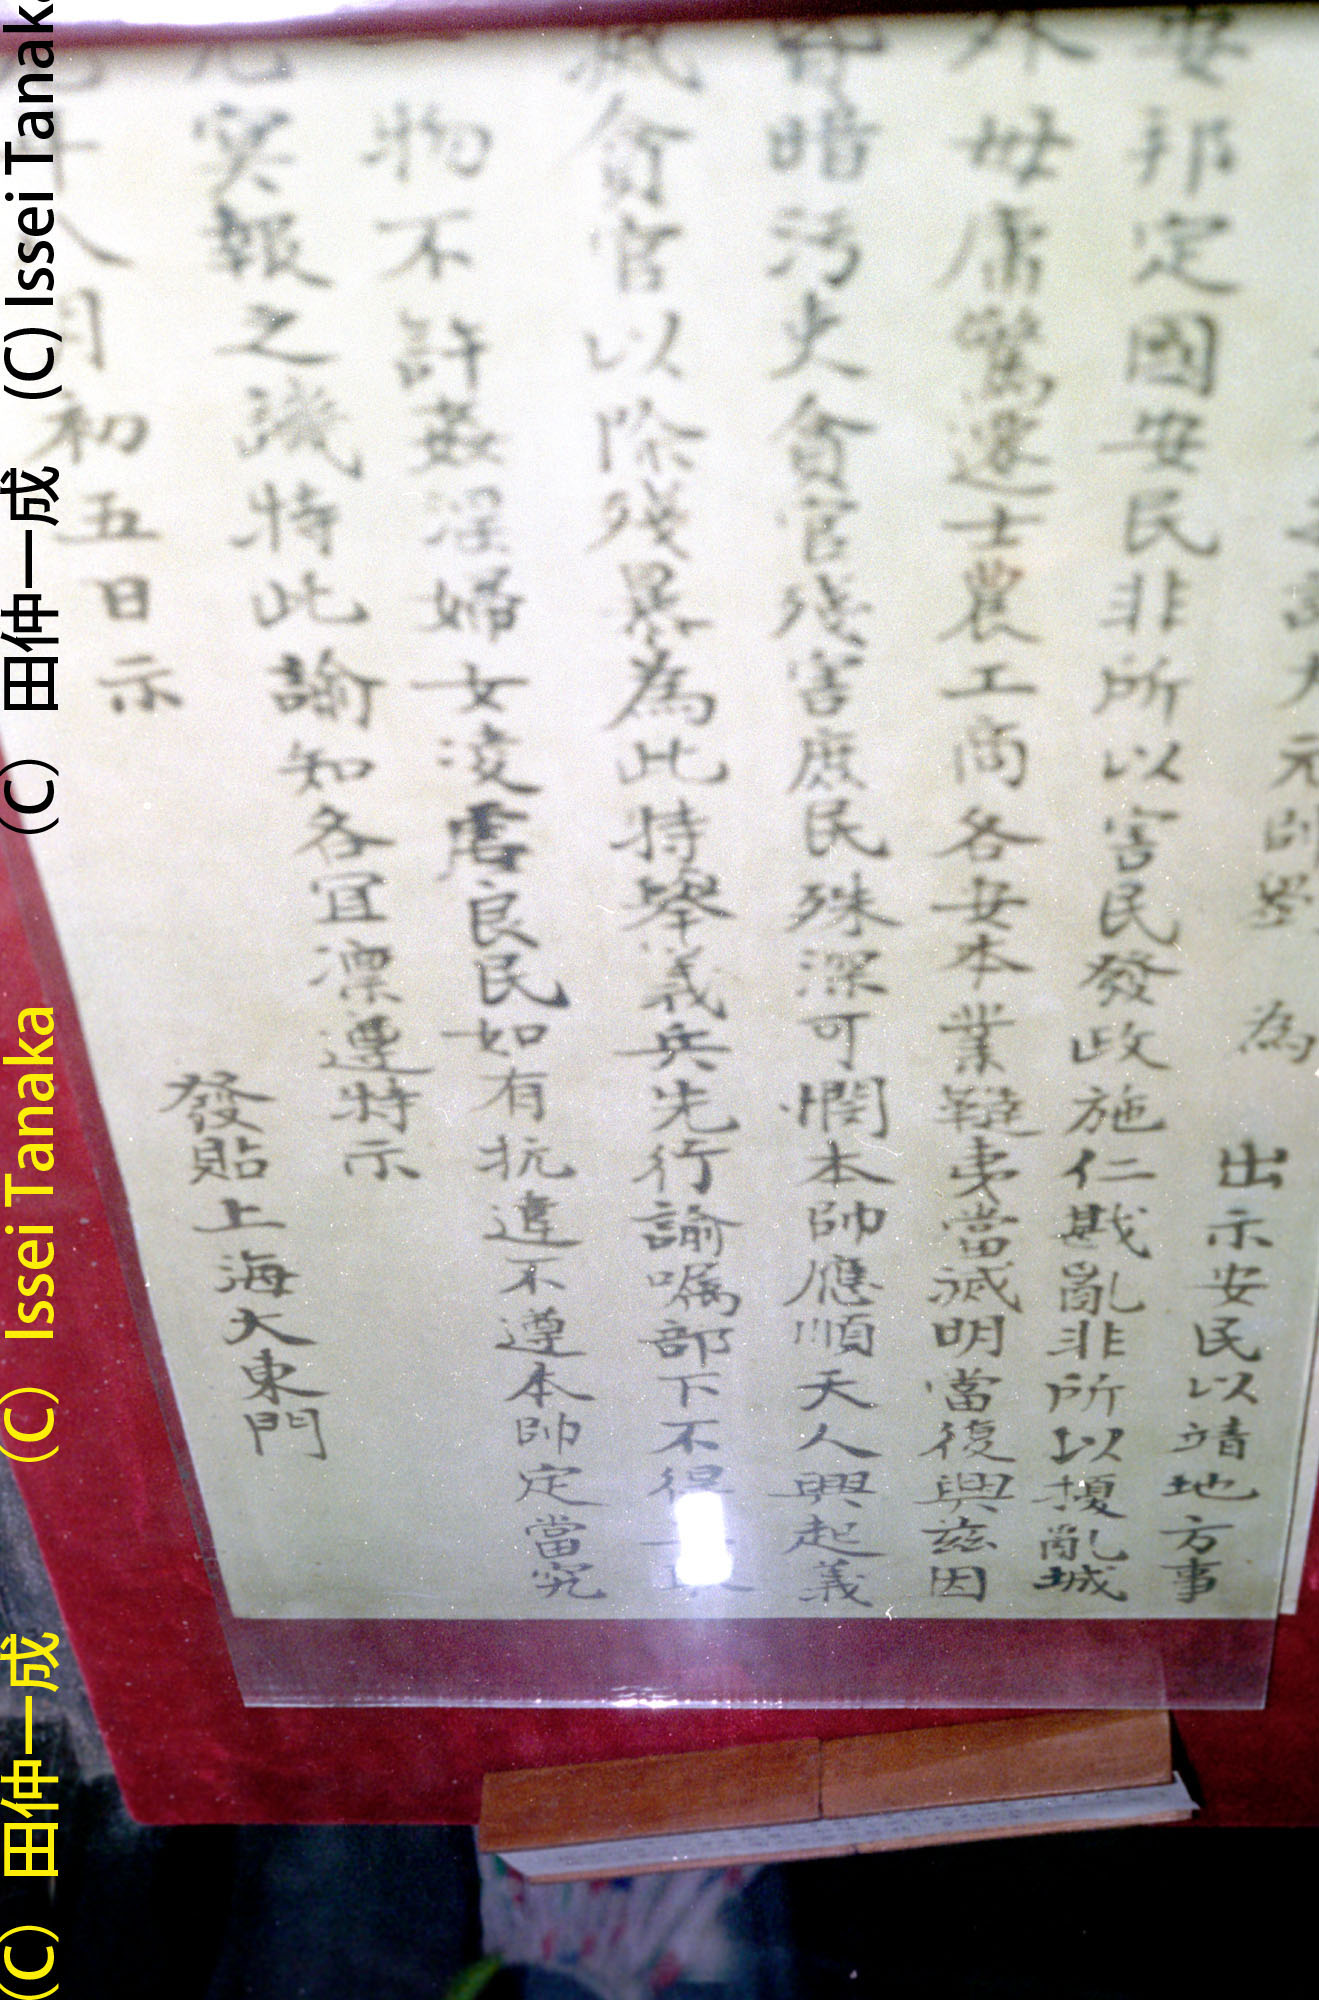 元帥劉 為 出示安民以靖地方事
安邦定國安民非所以害民發政施仁戡亂非所以擾亂城
外毋庸驚遑士農工商各安本業韃夷當滅明當復興茲因
暗污吏貪官殘害庶民殊深可憫本帥應順天人興起義
滅貪官以除殘暴為此特舉義兵先行諭囑部下不得
物不許姦淫婦女凌虐良民如有抗違不遵本帥定當究
冥報之譏特此諭知各宜凜遵特示
八月初五日示
發貼上海大東門
(C) 田仲一成 (C) Issei Tanaka
(C) 田仲一成 (C) Issei Tanaka